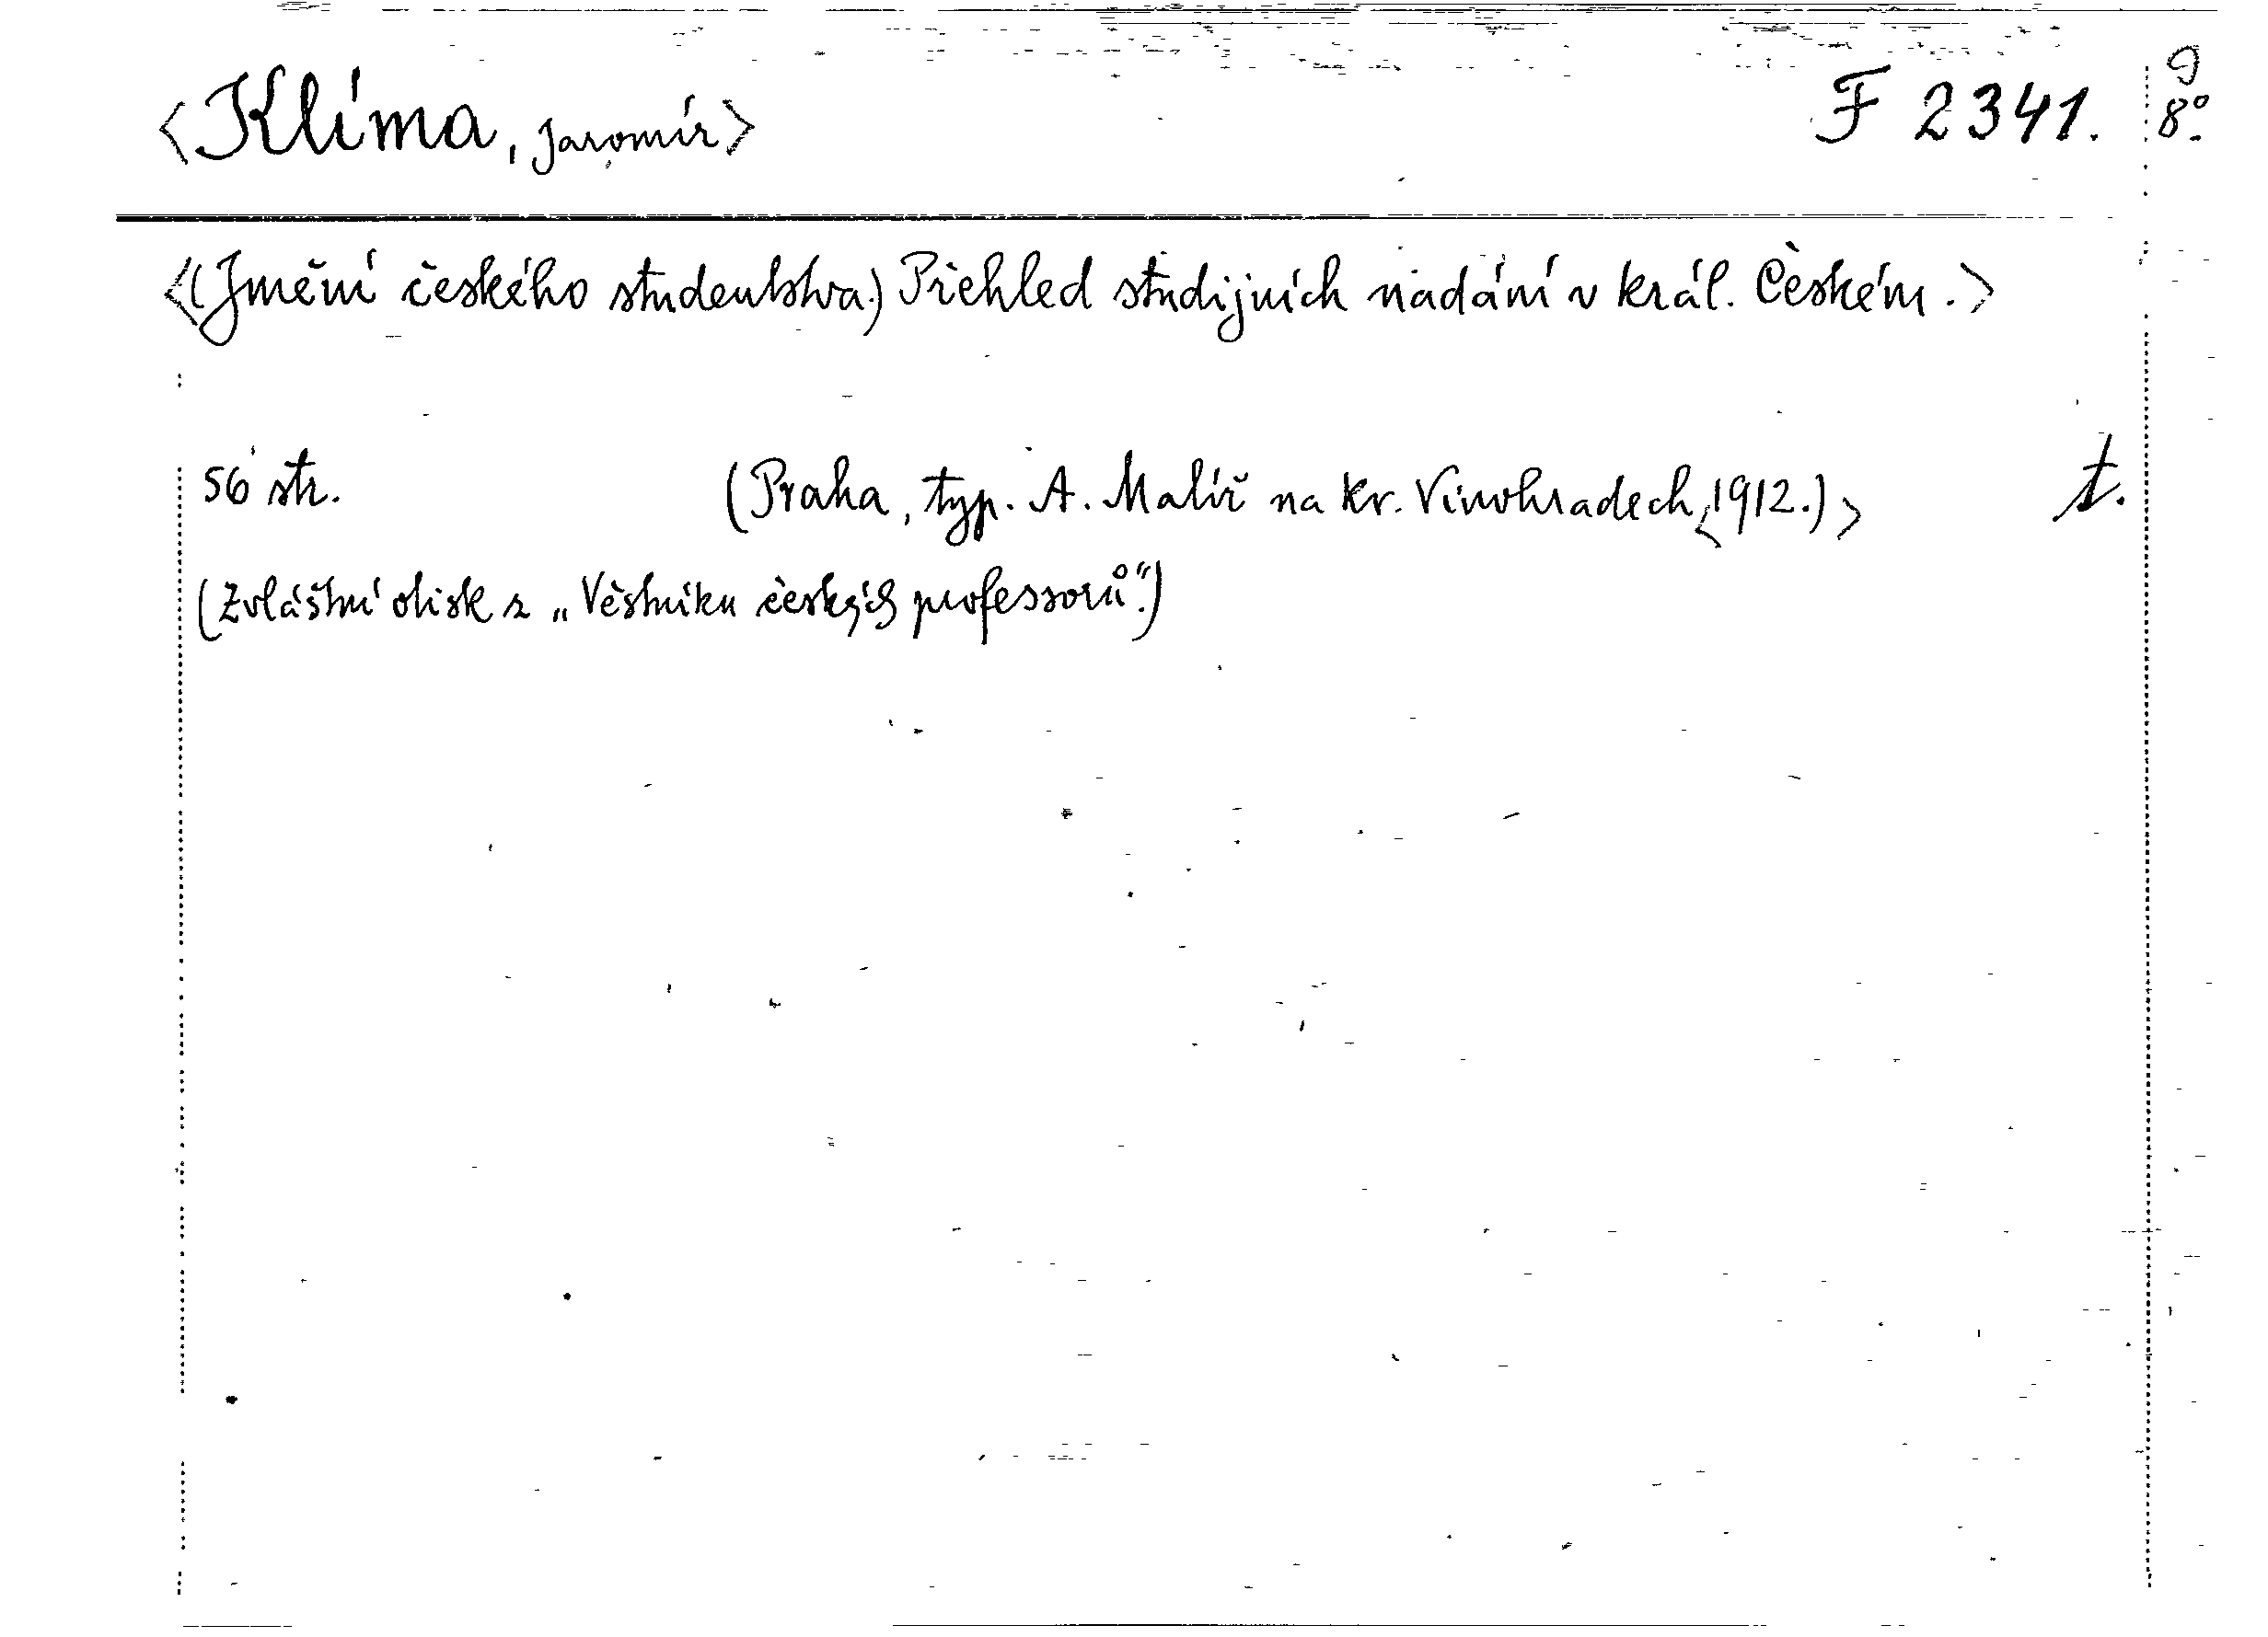 <Klíma, Jaromír> F 2341. 8°.
<(Jmění českého studentstva.) Přehled studijních nadání v král. Českém.>
56 str. (Praha, typ. A. Malíř na Kr. Vinohradech, <1912.)> t.
(Zvláštní otisk z „Věstníku českých professorů“.)